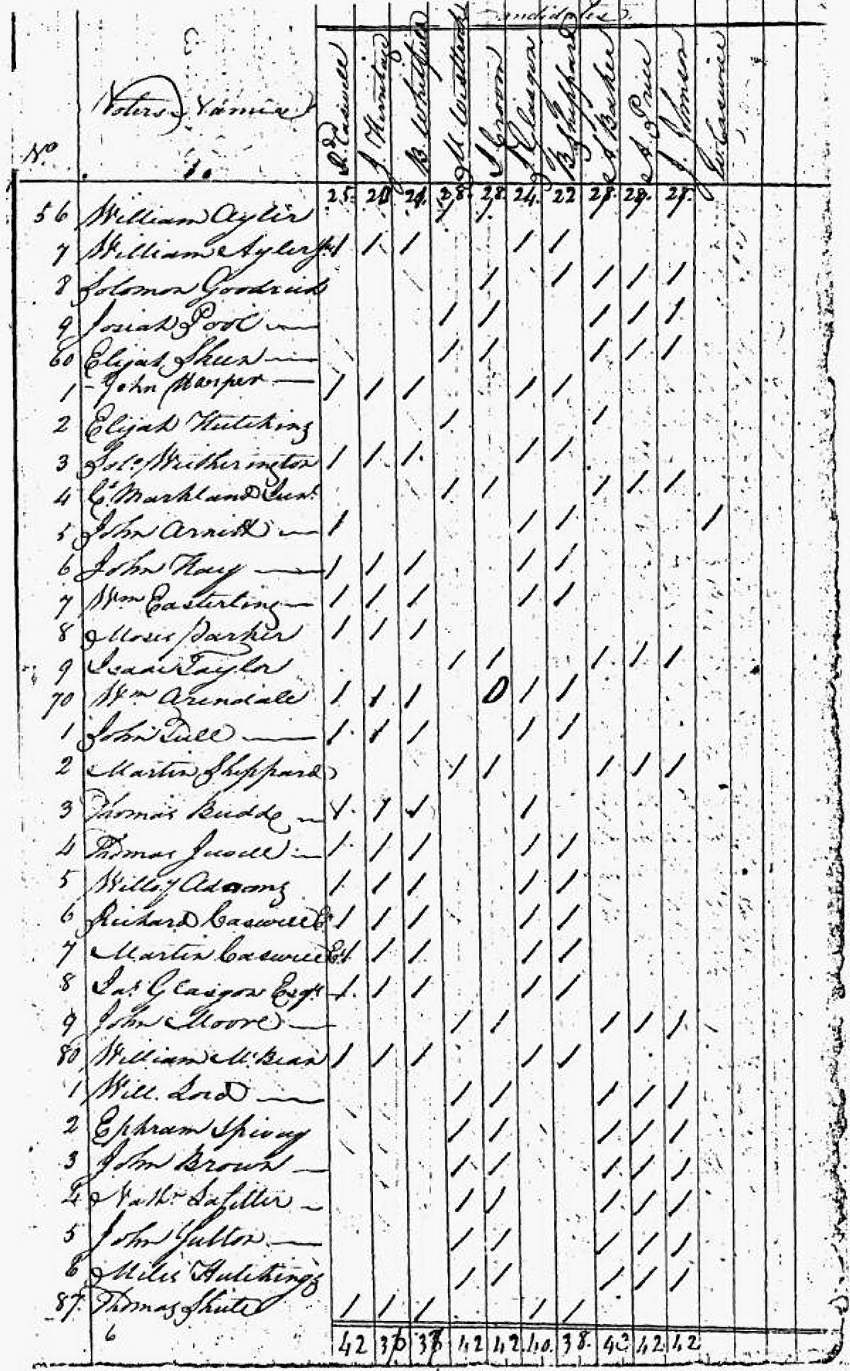 Candidates.
Voters Names
No
Rd Caswell
J. Herritage
B. Whitfield
M. Westbrook
J. Croom
J. Glasgon
B. Sheppard
A. Baker
A. Price
J. Johnson
W Caswell
25. 20 21. 28. 28. 24. 22 28. 28. 28.
56 William Aylir
7 William Ayler Jr
8 Solomon Goodrich
9 Josiah Pool
60 Elijah Skeen
1 John Harper
2 Elijah Hutchins
3 Solo Wetherington
4 Cs Markland Junr
5 John Arnett
6 John Kay
7 Wm Easterling
8 Moses Parker
9 Isaac Taylor
70 Wm Arendale
1 John Tull
2 Martin Sheppard
3 Thomas Budd
4 Thomas Jewell
5 Willoy Adams
6 Richard Caswell E
7 Martin Caswell Es
8 Jas Glasgon Esqr
9 John Moore
80 William McBean
1 Will. Lord
2 Ephram Spivey
3 John Brown
4 Nathn Lasitter
5 John Yelton
6 Miles Hutchings
87. Thomas Shute
6
42 36 38 42 42. 40. 38. 42 42 42